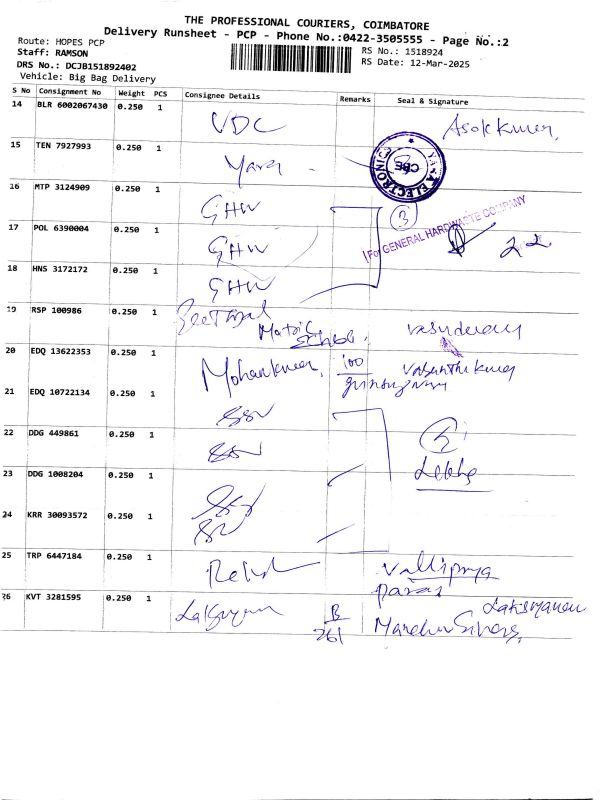 THE PROFESSIONAL COURIERS, COIMBATORE
Delivery Runsheet - PCP - Phone No.:0422-3505555 - Page No.:2
Route: HOPES PCP
Staff: RAMSON
DRS No.: DCJB151892402
Vehicle: Big Bag Delivery
RS No.: 1518924
RS Date: 12-Mar-2025
S No Consignment No Weight PCS Consignee Details Remarks Seal & Signature
14 BLR 6002067430 0.250 1 VDC Asokkumar,
15 TEN 7927993 0.250 1 Yara
YARA ELECTRONIC CBE
16 MTP 3124909 0.250 1 GHW 3
17 POL 6390004 0.250 1 GHW
For GENERAL HARDWASTE COMPANY
22
18 HNS 3172172 0.250 1 GHW
19 RSP 100986 0.250 1 Matric School. Vasudevan
20 EDQ 13622353 0.250 1 Mohankumar, 100 Vasanthakumar
21 EDQ 10722134 0.250 1 SSV
22 DDG 449861 0.250 1 5
23 DDG 1008204 0.250 1
24 KRR 30093572 0.250 1
25 TRP 6447184 0.250 1 Vallipriya
26 KVT 3281595 0.250 1 B 261 Laksmanan